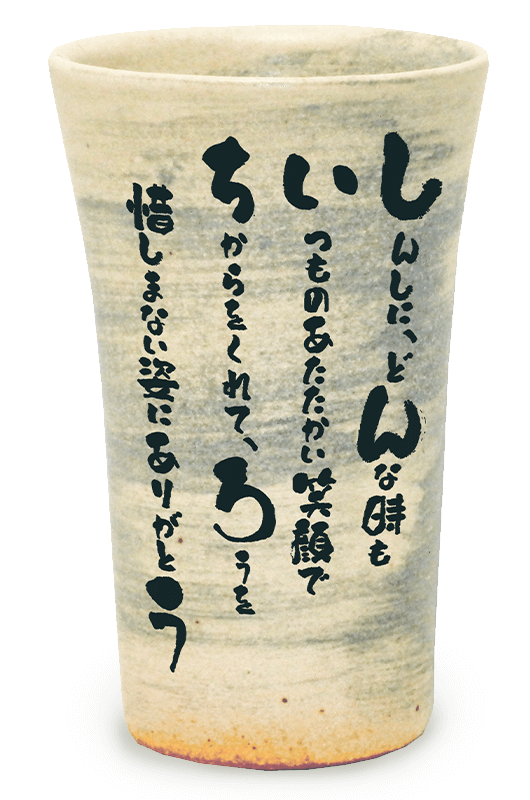 しんしに、どんな時も
いつものあたたかい笑顔で
ちからをくれて、ろうを
惜しまない姿にありがとう